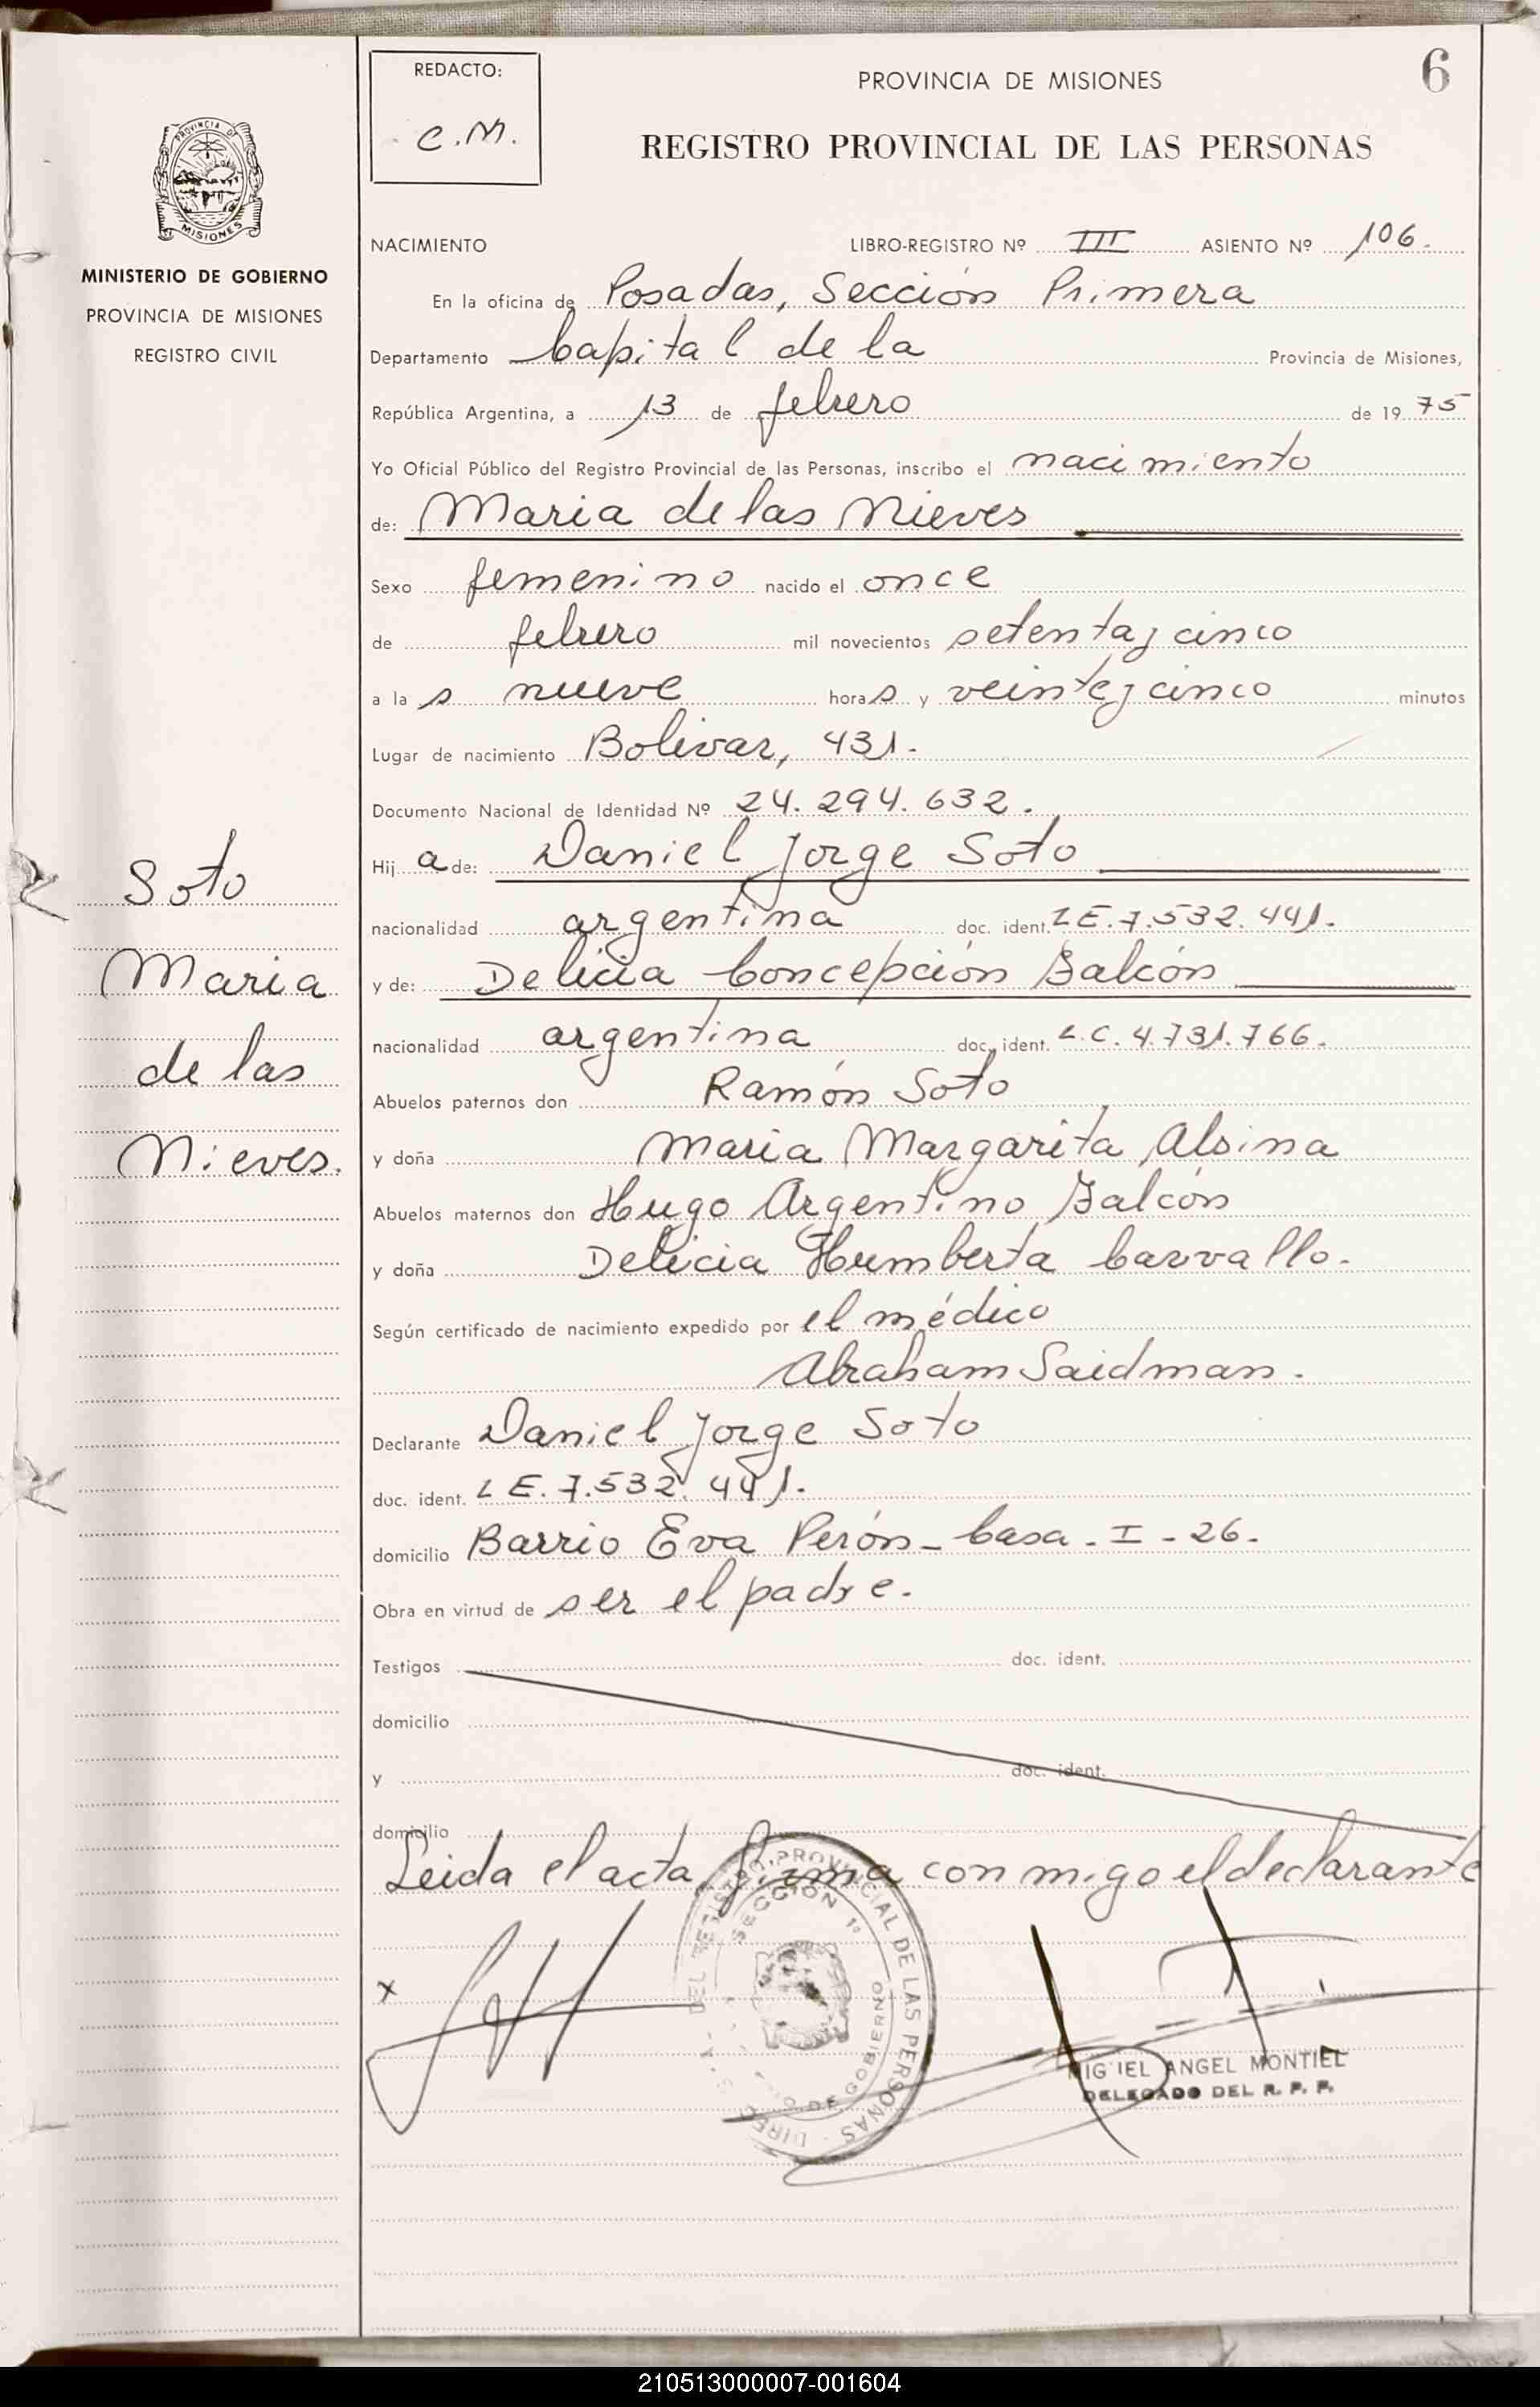 REDACTO:
C.M.
PROVINCIA DE MISIONES
6
REGISTRO PROVINCIAL DE LAS PERSONAS
PROVINCIA DE
MISIONES
MINISTERIO DE GOBIERNO
PROVINCIA DE MISIONES
REGISTRO CIVIL
NACIMIENTO LIBRO-REGISTRO Nº III ASIENTO Nº 106.
En la oficina de Posadas, Sección Primera
Departamento Capital de la Provincia de Misiones,
República Argentina, a 13 de febrero de 19 75
Yo Oficial Público del Registro Provincial de las Personas, inscribo el nacimiento
de: Maria de las Nieves
Sexo femenino nacido el once
de febrero mil novecientos setenta y cinco
a la s nueve hora s y veinte y cinco minutos
Lugar de nacimiento Bolivar, 431.
Documento Nacional de Identidad Nº 24.294.632.
Hij a de: Daniel Jorge Soto
nacionalidad argentina doc. ident. L E. 7.532.441.
y de: Delicia Concepción Balcón
nacionalidad argentina doc. ident. L.C. 4.731.766.
Abuelos paternos don Ramón Soto
y doña Maria Margarita Alsina
Abuelos maternos don Hugo Argentino Balcón
y doña Delicia Humberta Carvallo.
Según certificado de nacimiento expedido por el médico
Abraham Saidman.
Declarante Daniel Jorge Soto
doc. ident. L E. 7.532.441.
domicilio Barrio Eva Perón - Casa - I - 26.
Obra en virtud de ser el padre.
Testigos doc. ident.
domicilio
y doc. ident.
domicilio
Leida el acta, firma conmigo el declarante
x
DEL REGISTRO PROVINCIAL DE LAS PERSONAS
SECCION 1º
DE GOBIERNO
MIGUEL ANGEL MONTIEL
DELEGADO DEL R. P. P.
Soto
Maria
de las
Nieves.
210513000007-001604